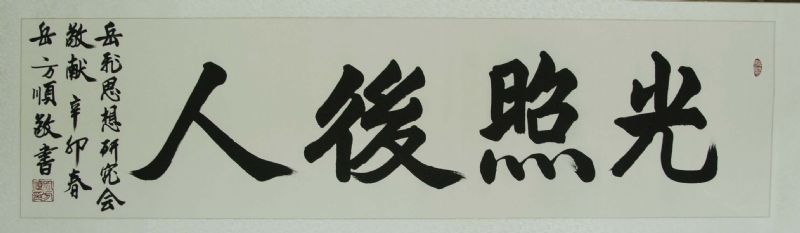 光照後人
岳飛思想研究会
敬献 辛卯春
岳方順敬書